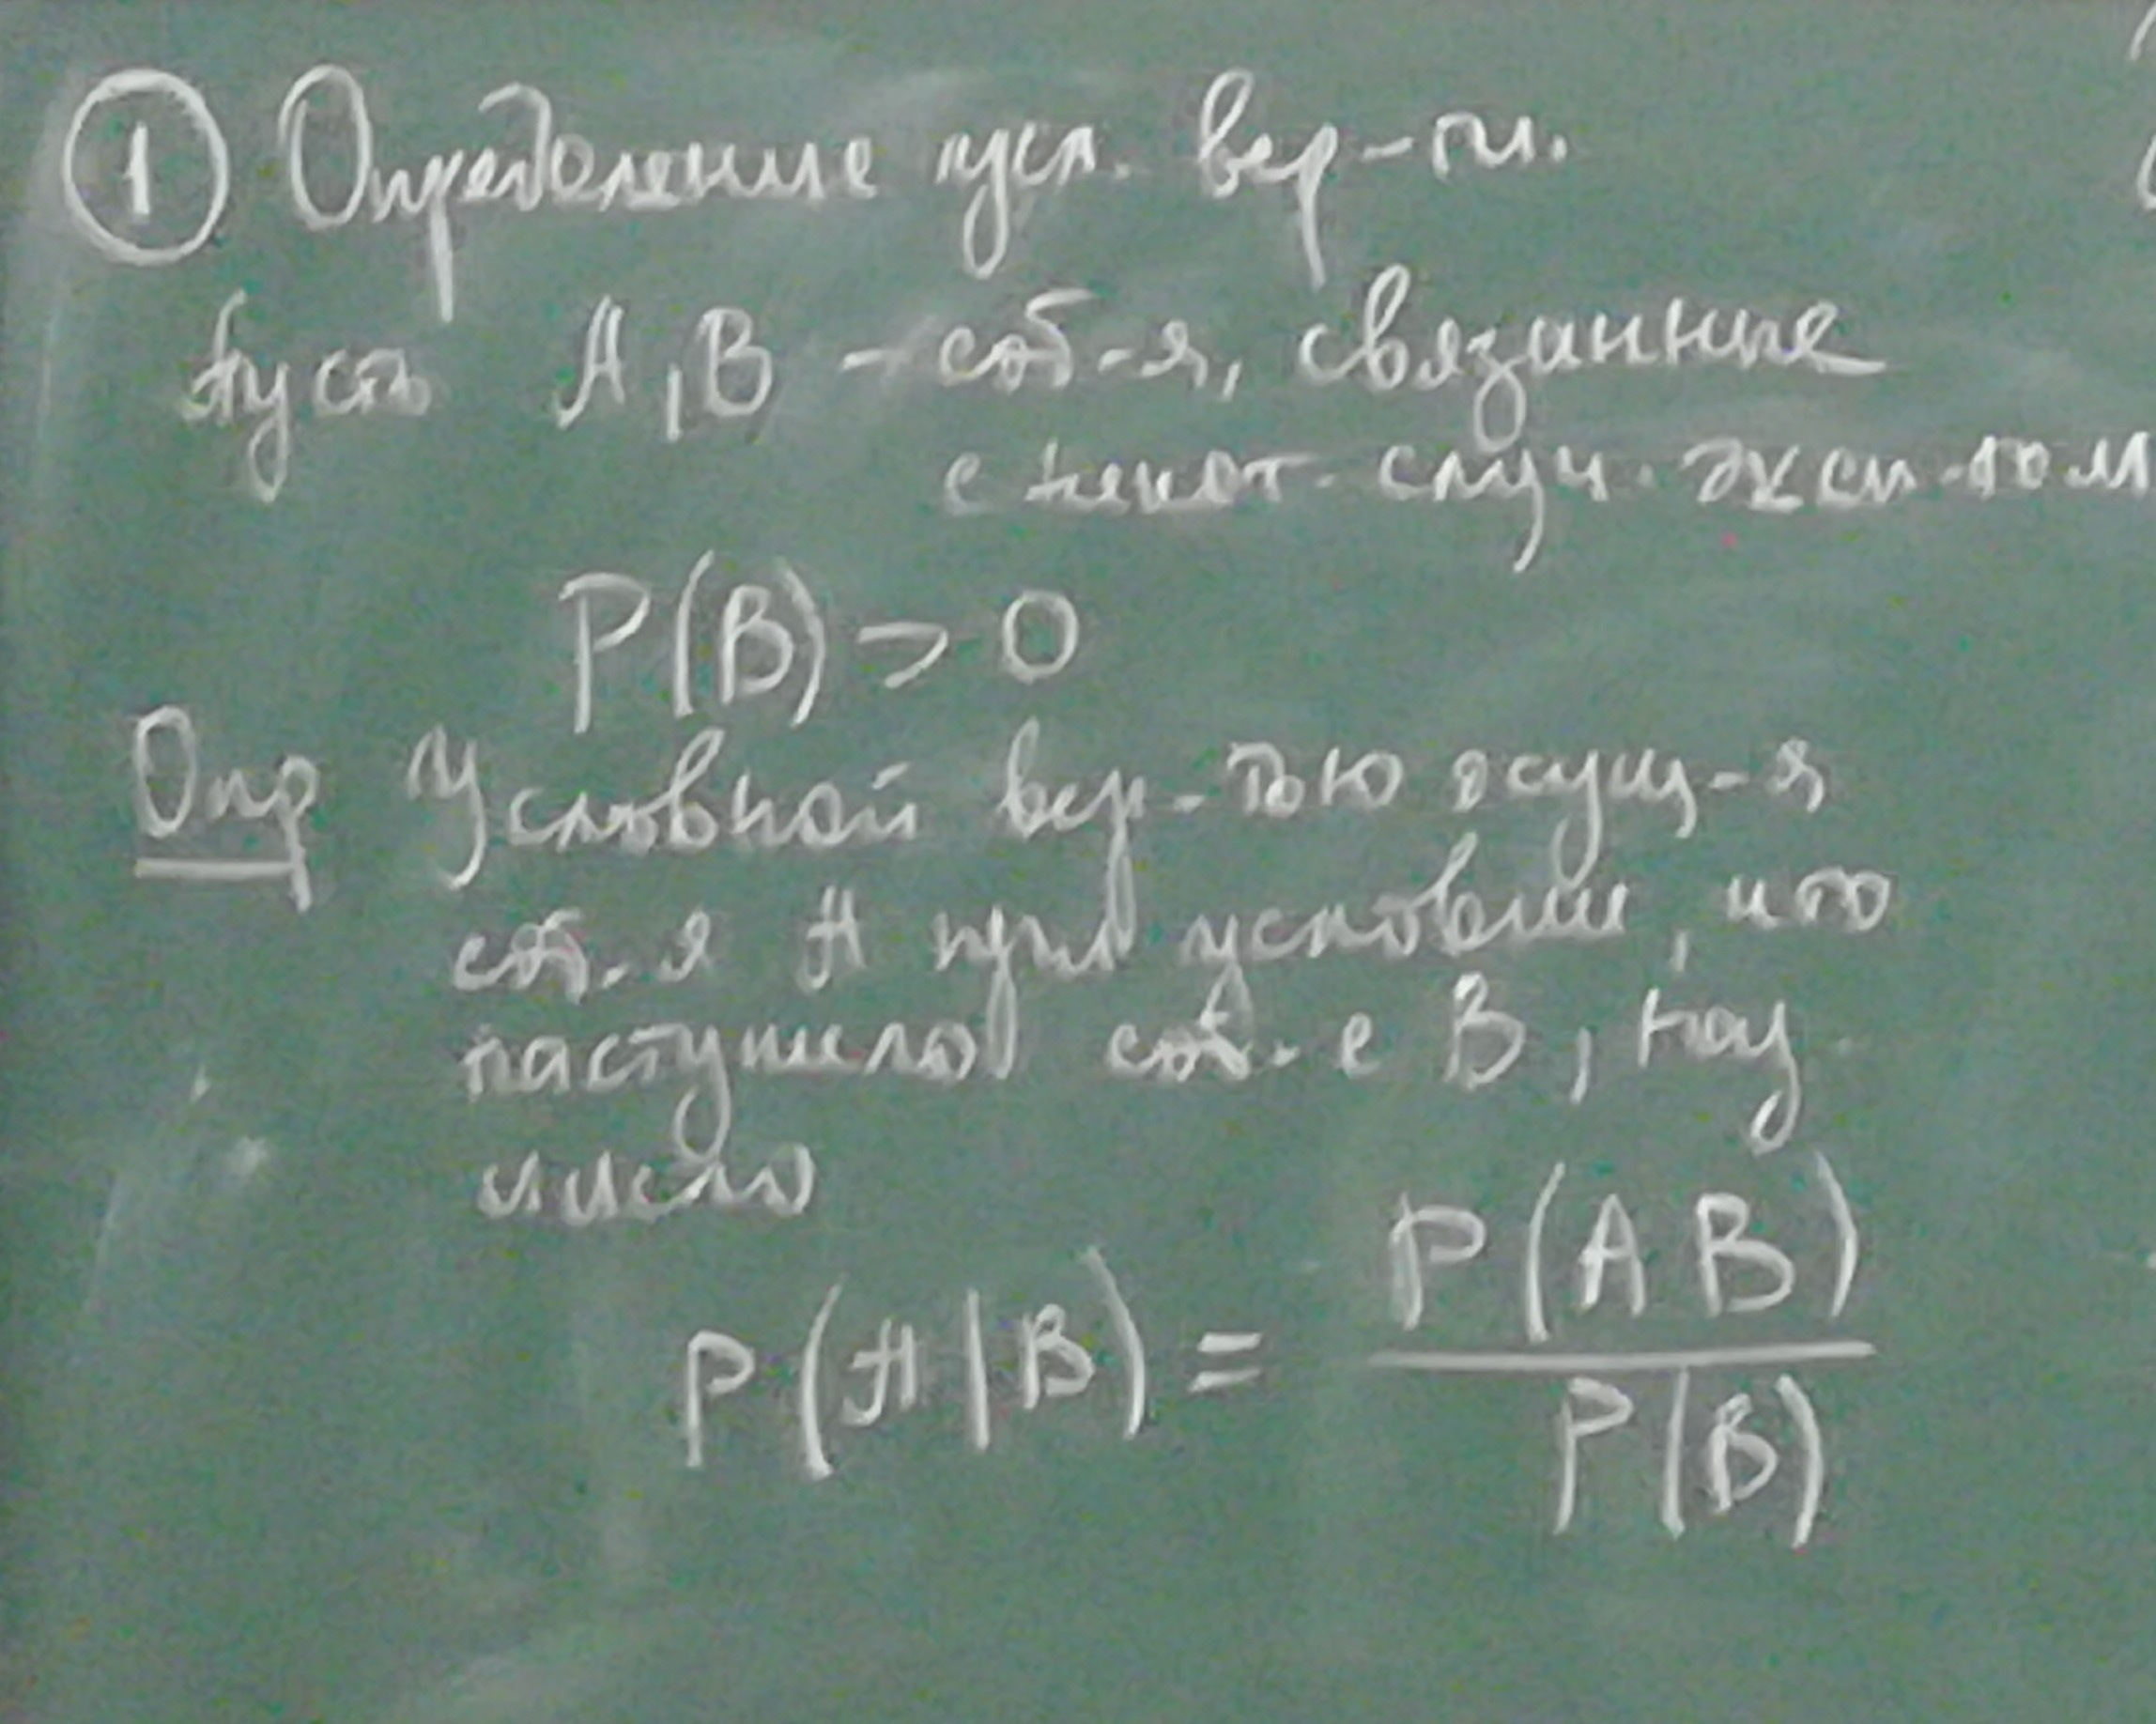 ① Определение усл. вер-ти.
Пусть A, B - соб-я, связанные
с некот. случ. эксп-том
P(B) > 0
Опр Условной вер-тью осущ-я
соб-я A при условии, что
наступило соб-е B, наз.
число
P(A|B) = P(AB) / P(B)